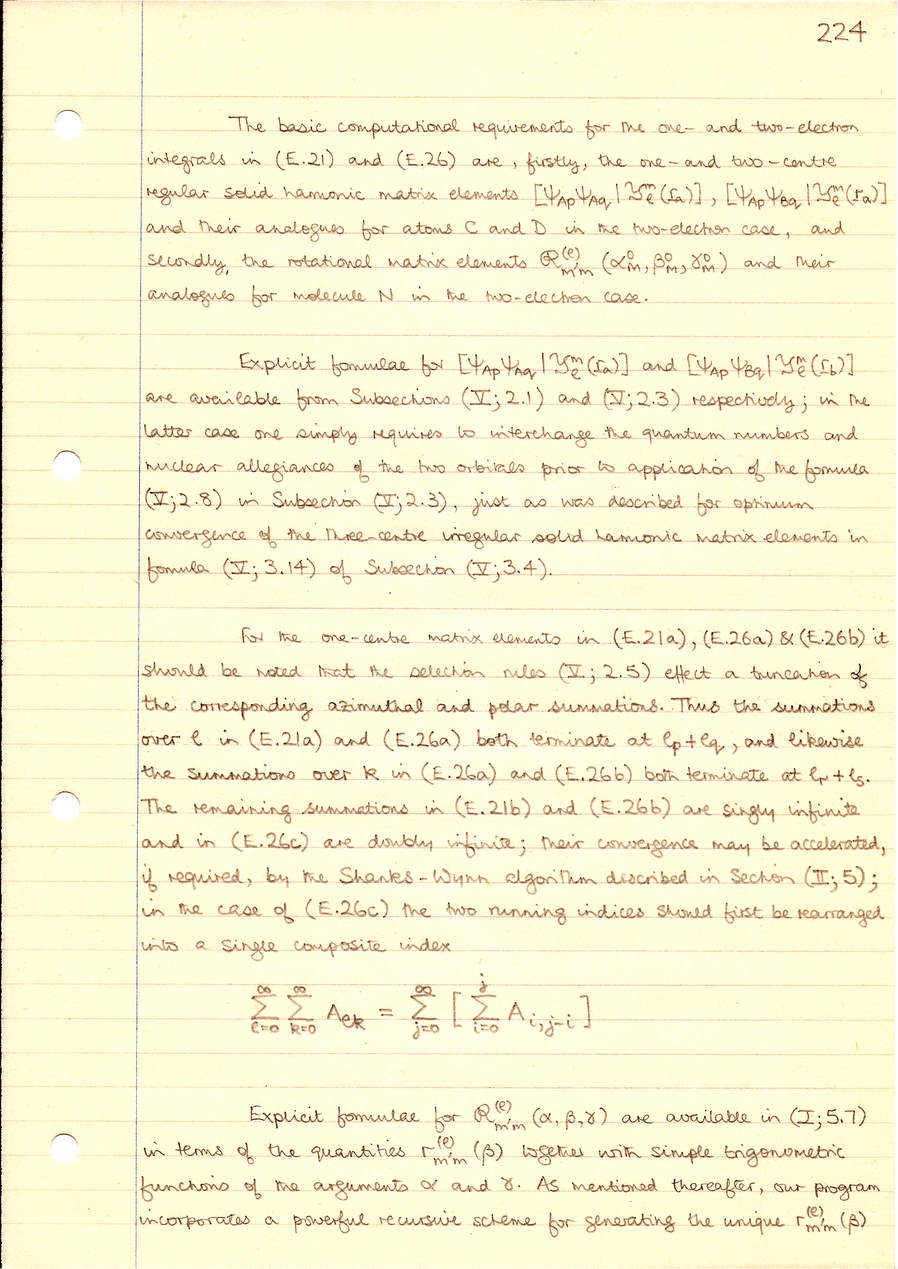 224
The basic computational requirements for the one- and two-electron
integrals in (E.21) and (E.26) are, firstly, the one-and two-centre
regular solid harmonic matrix elements [Ψ_Ap Ψ_Aq | 𝒴_ℓ^m (r_a)], [Ψ_Ap Ψ_Bq | 𝒴_ℓ^m (r_a)]
and their analogues for atoms C and D in the two-electron case, and
secondly, the rotational matrix elements ℛ_m'm^(ℓ) (α_M^0, β_M^0, γ_M^0) and their
analogues for molecule N in the two-electron case.
Explicit formulae for [Ψ_Ap Ψ_Aq | 𝒴_ℓ^m (r_a)] and [Ψ_Ap Ψ_Bq | 𝒴_ℓ^m (r_b)]
are available from Subsections (V; 2.1) and (V; 2.3) respectively; in the
latter case one simply requires to interchange the quantum numbers and
nuclear allegiances of the two orbitals prior to application of the formula
(V; 2.8) in Subsection (V; 2.3), just as was described for optimum
convergence of the three-centre irregular solid harmonic matrix elements in
formula (V; 3.14) of Subsection (V; 3.4).
For the one-centre matrix elements in (E.21a), (E.26a) & (E.26b) it
should be noted that the selection rules (V; 2.5) effect a truncation of
the corresponding azimuthal and polar summations. Thus the summations
over ℓ in (E.21a) and (E.26a) both terminate at ℓ_p + ℓ_q, and likewise
the summations over k in (E.26a) and (E.26b) both terminate at ℓ_r + ℓ_s.
The remaining summations in (E.21b) and (E.26b) are singly infinite
and in (E.26c) are doubly infinite; their convergence may be accelerated,
if required, by the Shanks-Wynn algorithm described in Section (II; 5);
in the case of (E.26c) the two running indices should first be rearranged
into a single composite index
∑_{ℓ=0}^∞ ∑_{k=0}^∞ A_ℓk = ∑_{j=0}^∞ [ ∑_{i=0}^j A_{i,j-i} ]
Explicit formulae for ℛ_m'm^(ℓ) (α, β, γ) are available in (I; 5.7)
in terms of the quantities r_m'm^(ℓ) (β) together with simple trigonometric
functions of the arguments α and γ. As mentioned thereafter, our program
incorporates a powerful recursive scheme for generating the unique r_m'm^(ℓ) (β)